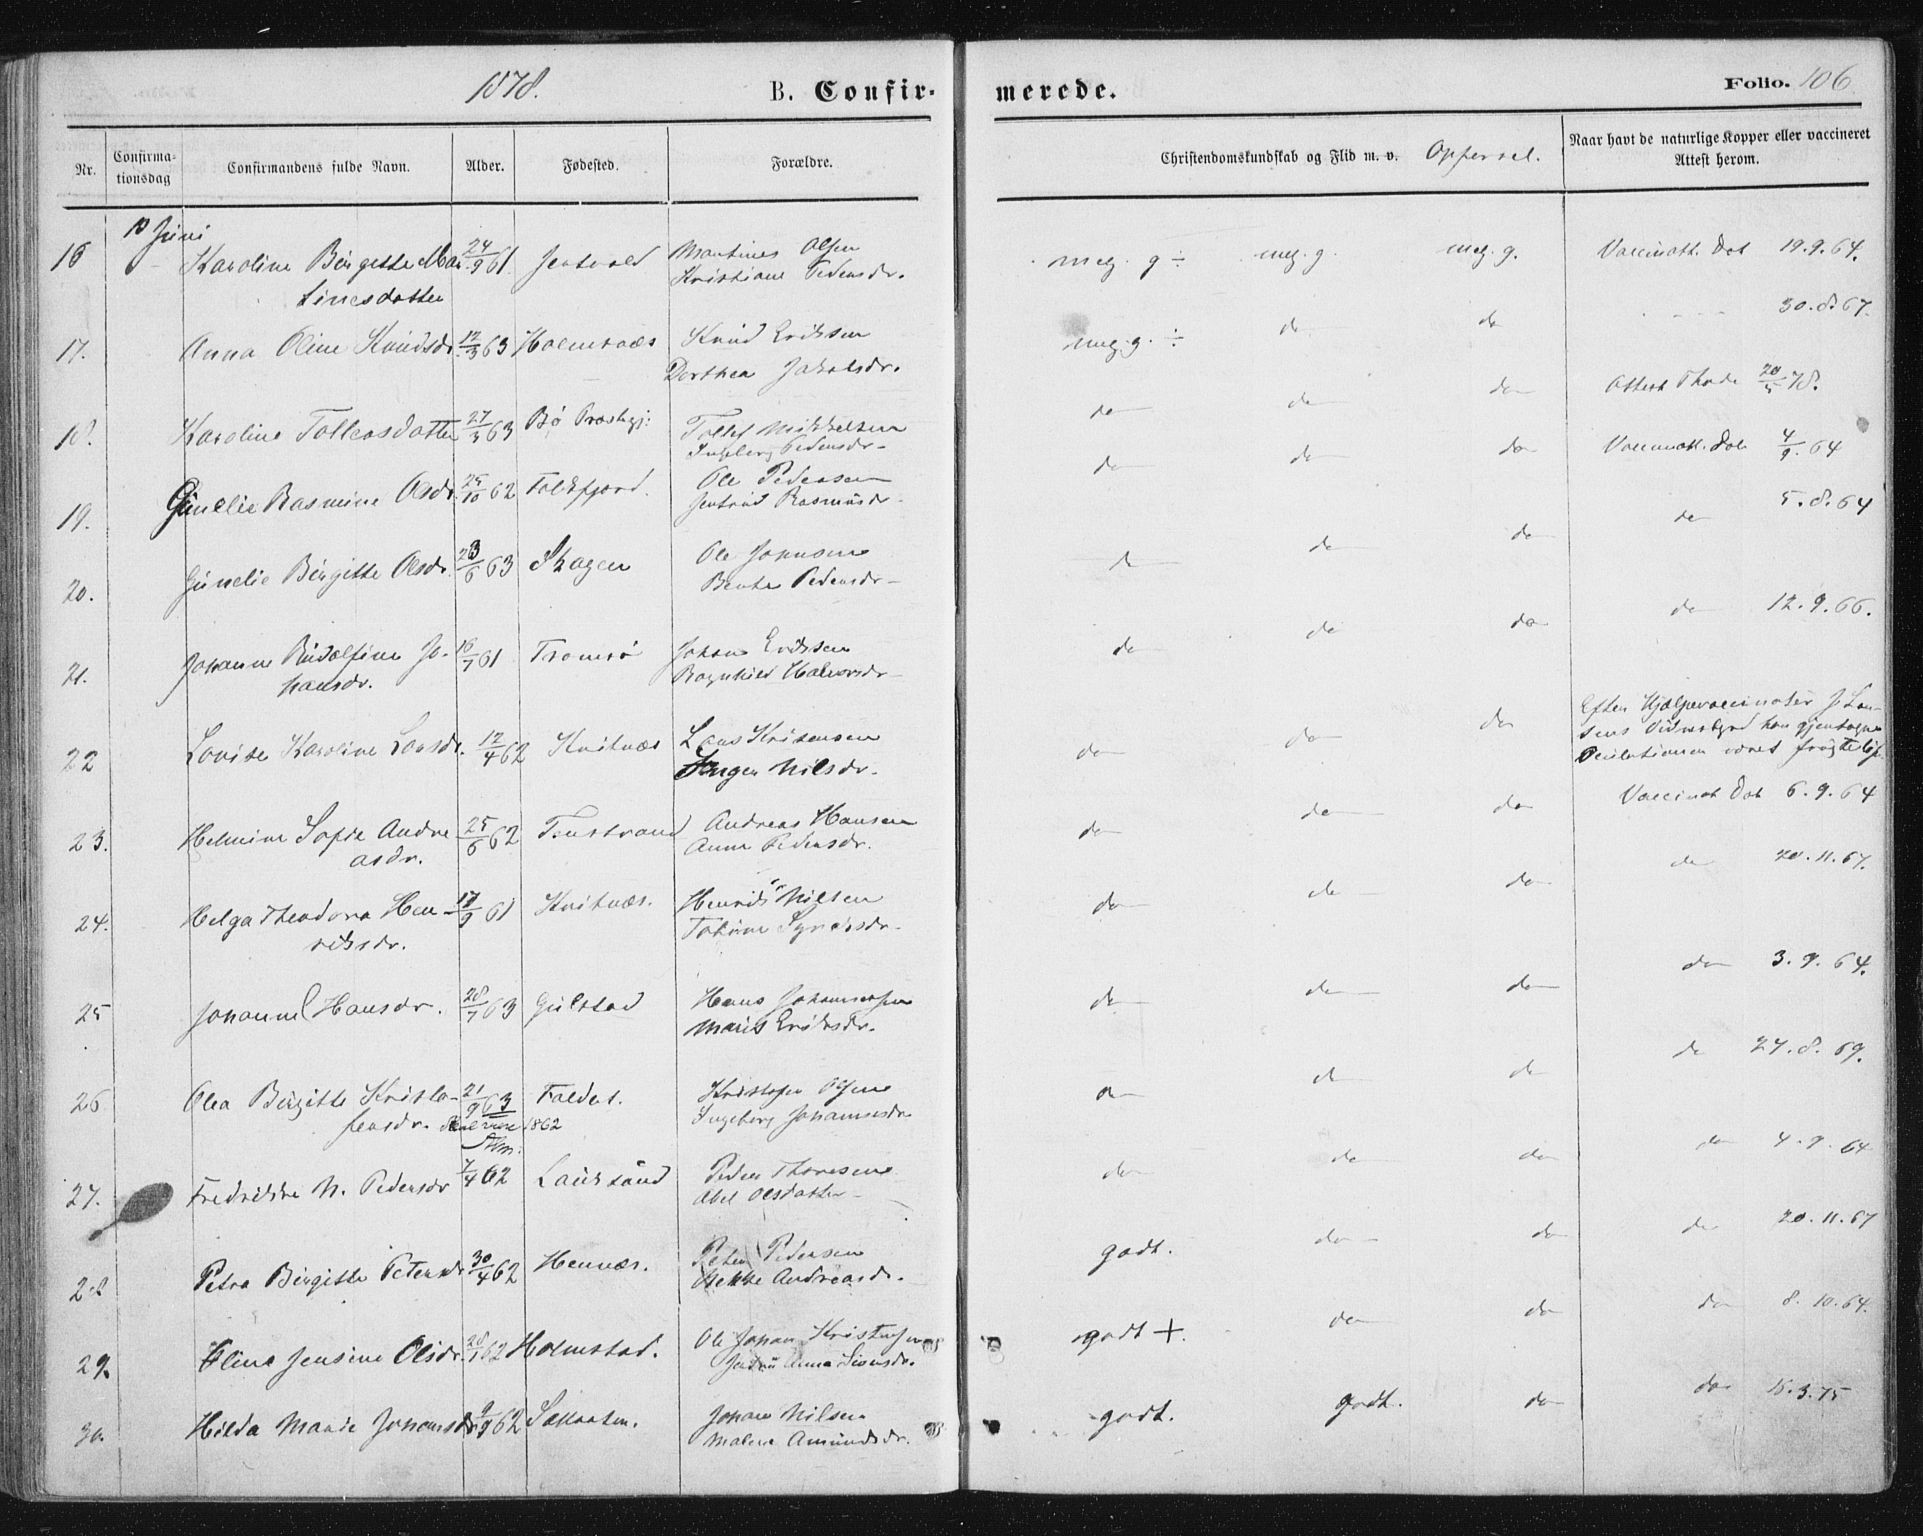 1878. B. Confirmerede. Folio. 106
Nr. Confirmationsdag Confirmandens fulde Navn. Alder. Fødested. Forældre. Christendomskundskab og Flid m. v. Opførsel. Naar havt de naturlige Kopper eller vaccineret
Attest herom.
10 Juni
16 Karoline Birgitte Mar 24/9 61 Martines Olsen meg. g ÷ meg. g. meg. g. Vaccinatt. Dat 19.9.64.
tinesdatter Kristiane Pedersdr.
17. Anna Oline Knudsdr. 12/3 63 Holmsnæs Knud Eriksen meg. g. ÷ do do 30.8.67.
Dorthea Jakobsdr.
18. Karoline Tollefsdatter 27/3 63 Bø Præstegj: Tollef Mikkelsen do do do Attest Thode 78.
Ingeborg Pedersdr.
19. Gunelie Rasmine Olsdr. 25/10 62 Ole Pedersen do do do Vaccinatt. Dat 4/9. 64
Rasmusdr
20. Gunelie Birgitte Olsdr. 23/6 63 Skagen Ole Johnsen do do do do 5.8.64
Bente Pedersdr
21. Johanne Rudolfine Jo- 16/7 61 Tromsø Johan Eriksen do do do do 12.9.66.
hansdr. Ragnhild Halvorsdr
22 Lovise Karoline Larsdr. 12/4 62 Kvitnæs Lars Kristensen do do do Efter Hjælpevaccinatør J. Lar-
sens Vidnesbyrd har gjentagne
Inger Nilsdr. Oculationer været frugtesløse
23. Helmine Sofie Andre 25/6 62 Tenstrand Andreas Hansen do do do Vaccinat Dat 6.9.64
asdr. Anne Pedersdr.
24. Helga Theodora Hen- 17/9 61 Kvitnæs. Henrik Nilsen do do do do 20.11.67.
riksdr.
25 Johanne Hansdr. 28/7 63 Gulstad Hans Johannesen do do do do 3.9.64.
Marit Eriksdr.
26 Olea Birgitte Kristo- 21/9 63 Faldet. Kristofer Olsen do do do do 27.8.69.
fersdr. 1862 Ingeborg Johannesdr
27. Fredrikke N. Pedersdr 7/4 62 Lauksund Peder Thoresen do do do do 4.9.64
Abel Olsdatter
28 Petra Birgitte Petersdr 30/4 62 Hennæs. Peter Pedersen godt. do do do 20.11.67
Andreasdr.
29. Eline Jensine Olsdr. 28/1 62 Holmstad. Ole Johan Kristensen godt +. do do do 8.10.64.
Anna Siversdr.
30. Hilda Marie Johansdr 9/9 62 Johan Nilsen godt. godt. do do 15.3.75
Amundsdr.